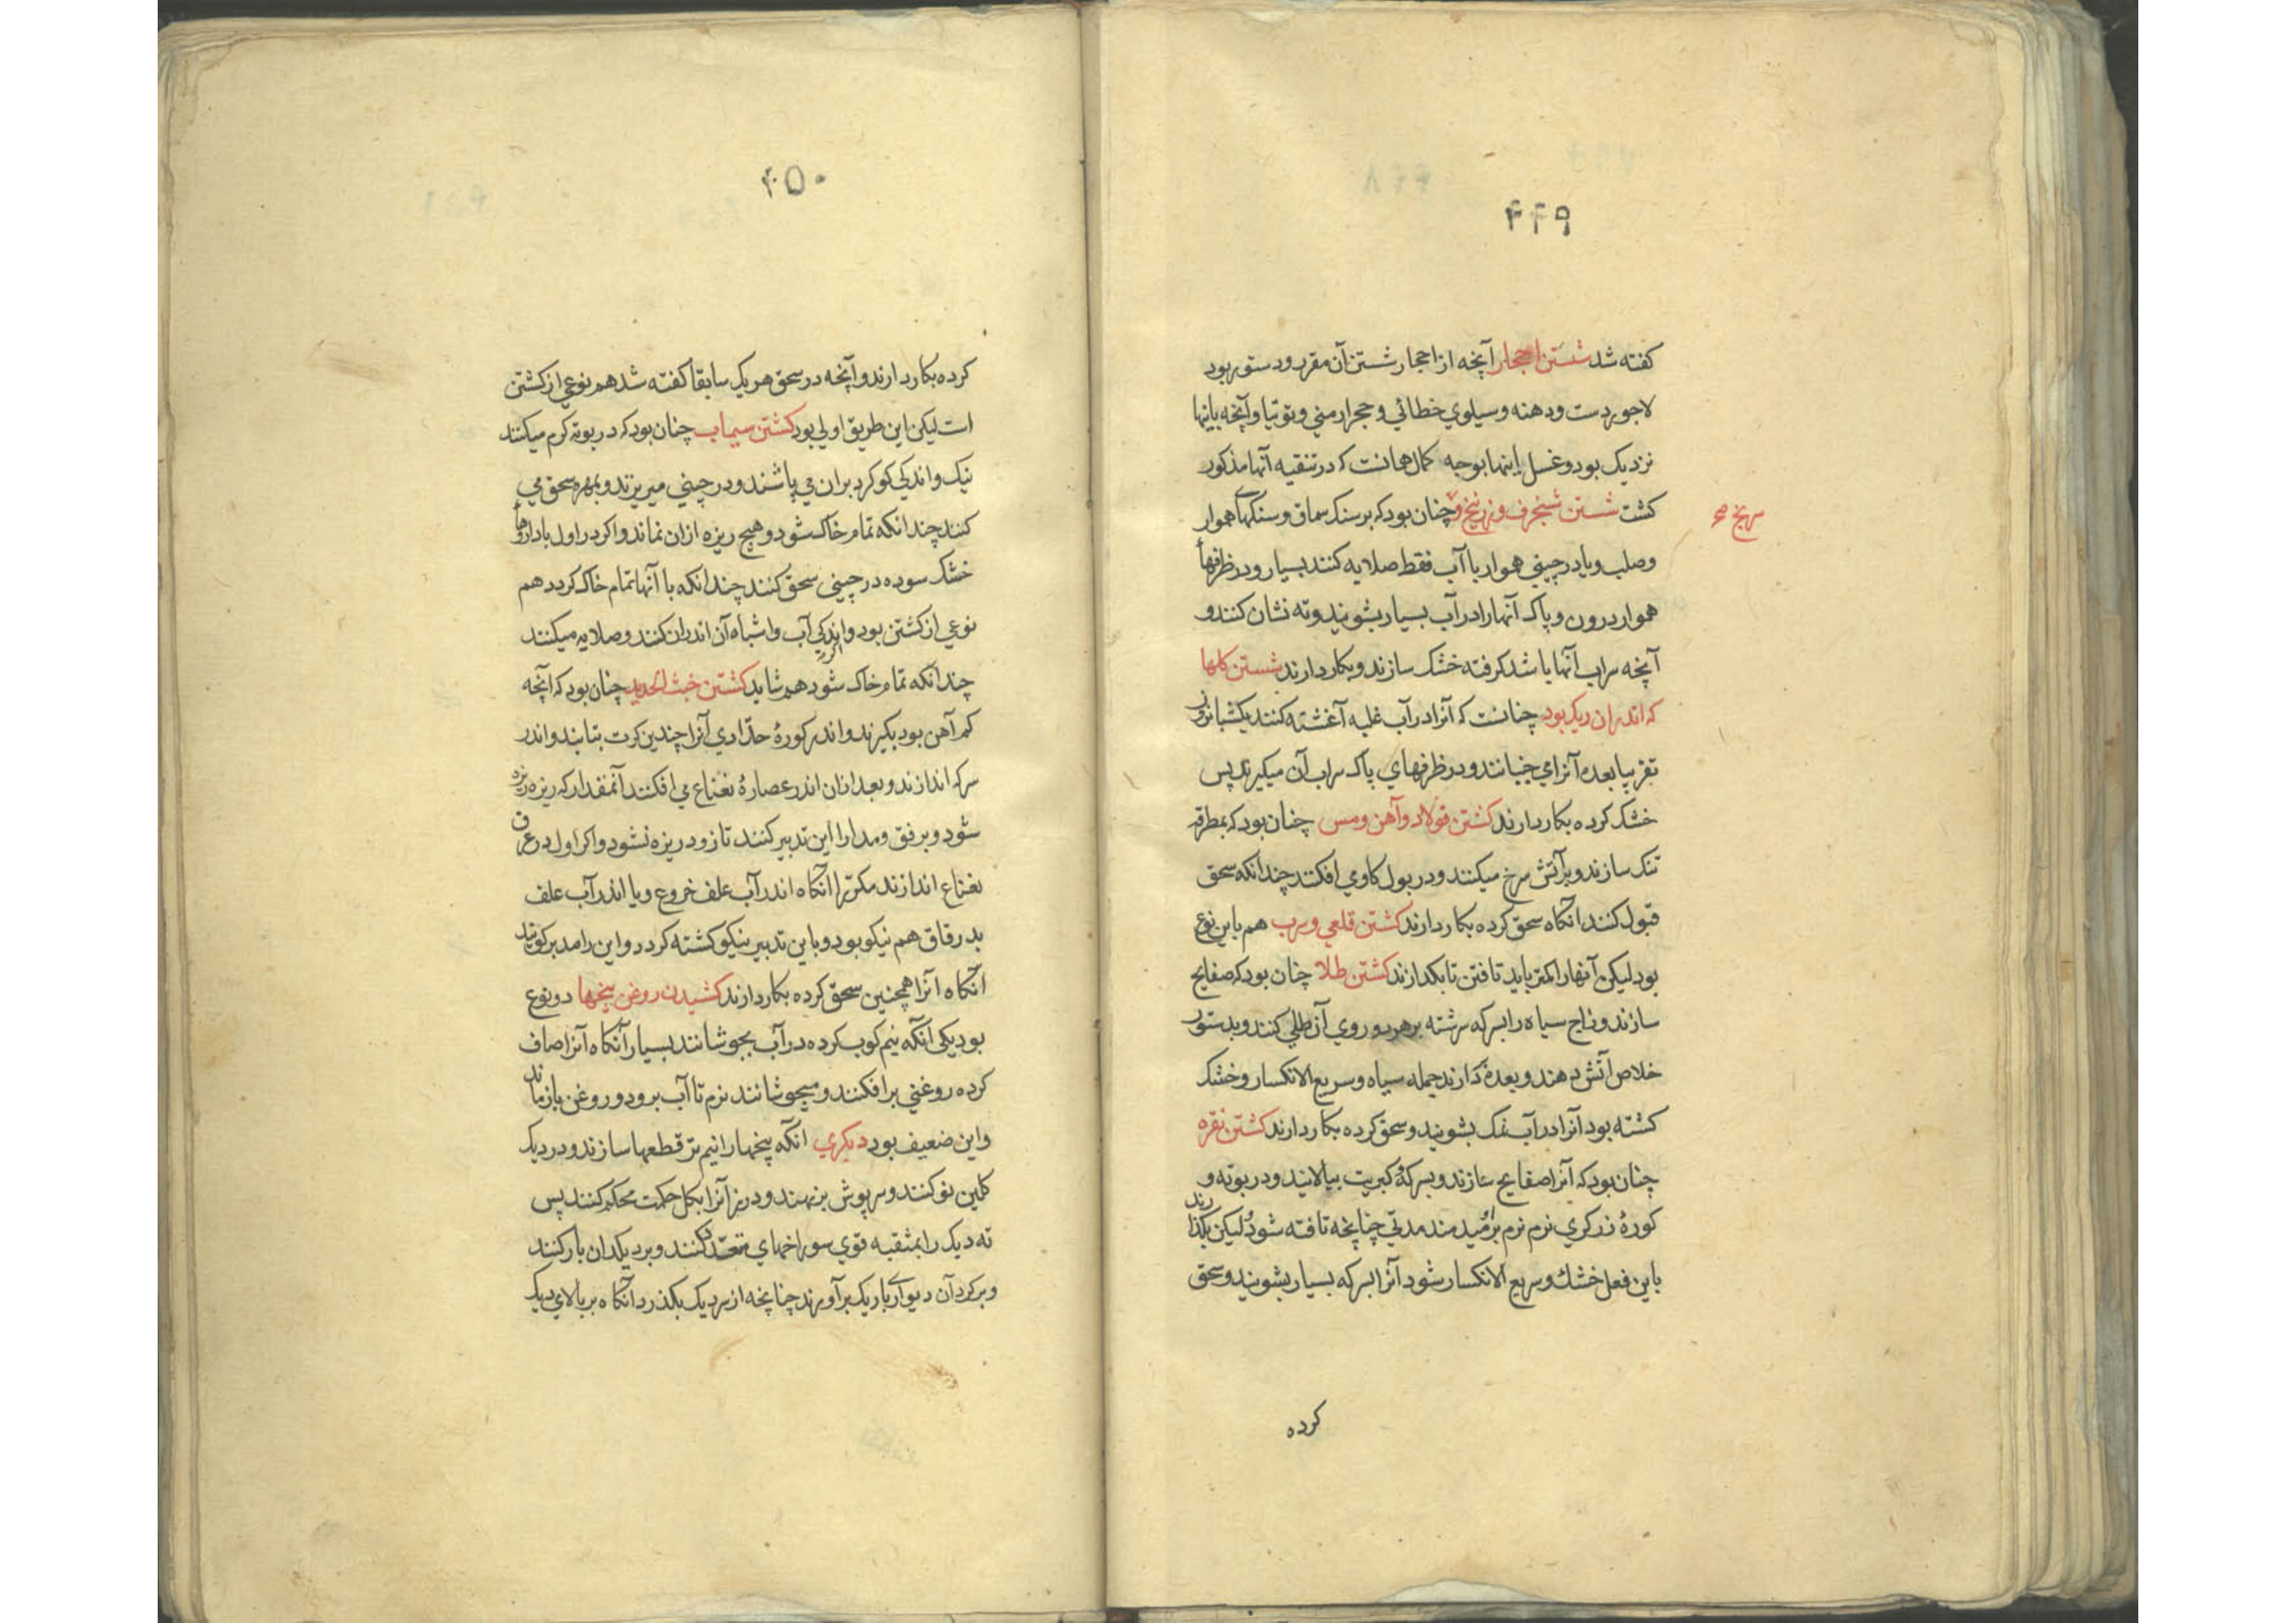 ۴۴۹
کفته شد شستن احجار آنچه از احجار شستن آن مقرر و دستور بود
لاجوردست و دهنه و سیلوی خطائی و حجر ارمنی و توتیا و آنچه باینها
نزدیک بود و غسل اینها بوجه کمال همانست که در تنقیه آنها مذکور
کشت شستن شنجرف و زرنیخ و چنان بود که بر سنک سماق و سنکهای هموار
سرنج صح
وصلب و یا در چینی هموار با آب فقط صلایه کنند بسیار و در ظرفها
هموار درون و پاک آنها را در آب بسیار بشویند و ته نشان کنند و
آنچه سراب آنها باشد کرفته خشک سازند و بکار دارند شستن کلها
که اندران ریک بود چنانست که آنرا در آب غلبه آغشته کنند یکشبانروز
تقریبا بعده آنرا می جنبانند و در ظرفهای پاک سراب آن میکیرند پس
خشک کرده بکار دارند کشتن فولاد و آهن و مس چنان بود که بمطرقه
تنک سازند و بر آتش سرخ میکنند و در بول کاو می افکنند چندانکه سحق
قبول کنند آنکاه سحق کرده بکار دارند کشتن قلعی و سرب هم باین نوع
بود لیکن آنها را کمتر باید تافتن تا بکدازند کشتن طلا چنان بود که صفایح
سازند و زاج سیاه را بسرکه سرشته بر هر دو روی آن طلی کنند و بدستور
خلاص آتش دهند و بعده دارند جمله سیاه و سریع الانکسار و خشک
کشته بود آنرا در آب نمک بشویند و سحق کرده بکار دارند کشتن نقره
چنان بود که آنرا صفایح سازند و بسرکه و کبریت بیالایند و در بوته و
کورۀ زرکری نرم نرم بردمیدمند مدتی چنانچه تافته شود لیکن بکذارند
باین فعل خشک و سریع الانکسار شود آنرا بسرکه بسیار بشویند و سحق
کرده
۴۵۰
کرده بکار دارند و آنچه در سحق هر یک سابقا کفته شد هم نوعی از کشتن
است لیکن این طریق اولی بود کشتن سیماب چنان بود که در بوته کرم میکنند
نیک و اندکی کوکرد بران می پاشند و در چینی میریزند و بمهره سحق می
کنند چندانکه تمام خاک شود و هیچ ریزه ازان نماند و اکر در اول با داروها
خشک سوده در چینی سحق کنند چندانکه با آنها تمام خاک کردد هم
نوعی از کشتن بود و اندکی آب و اشباه آن اندران کنند و صلایه میکنند
اکر
چندانکه تمام خاک شود هم شاید کشتن خبث الحدید چنان بود که آنچه
کم آهن بود بکیرند و اندر کورۀ حدّادی آنرا چندین کرت بتابند و اندر
سرکه اندازند و بعد ازان اندر عصارۀ نعناع می افکنند آنمقدار که ریزه ریزه
شود و برفق و مدارا این تدبیر کنند تا زود ریزه نشود و اکر اول در عرق
نعناع اندازند مکرّر آنکاه اندر آب علف خروع و یا اندر آب علف
بدرقاق هم نیکو بود و باین تدبیر نیکو کشته کردد و این را مدبر کویند
آنکاه آنرا همچنین سحق کرده بکار دارند کشیدن روغن بیخها دو نوع
بود یکی آنکه نیم کوب کرده در آب بجوشانند بسیار آنکاه آنرا صاف
کرده روغنی بر افکنند و میجوشانند نرم تا آب برود و روغن باز ماند
و این ضعیف بود دیکری آنکه بیخها را نیم تر قطعها سازند و در دیک
کلین نو کنند و سرپوش بر نهند و درز آنرا بکل حکمت محکم کنند پس
ته دیک را بمثقبه قوی سوراخهای متعدد کنند و بر دیکدان بار کنند
و بر کرد آن دیواری باریک بر آورند چنانچه از سر دیک بکذرد آنکاه بر بالای دیک